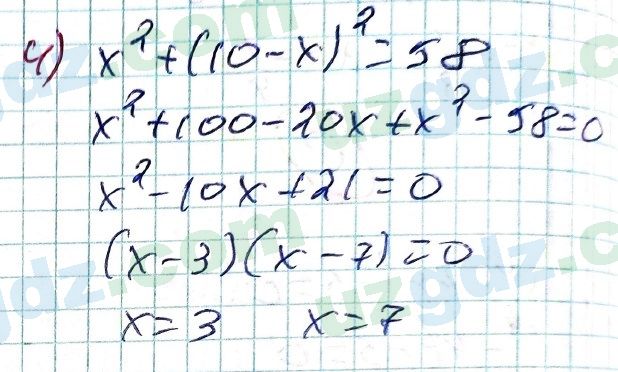 4) x² + (10 - x)² = 58
x² + 100 - 20x + x² - 58 = 0
x² - 10x + 21 = 0
(x - 3)(x - 7) = 0
x = 3 x = 7
uzgdz.com